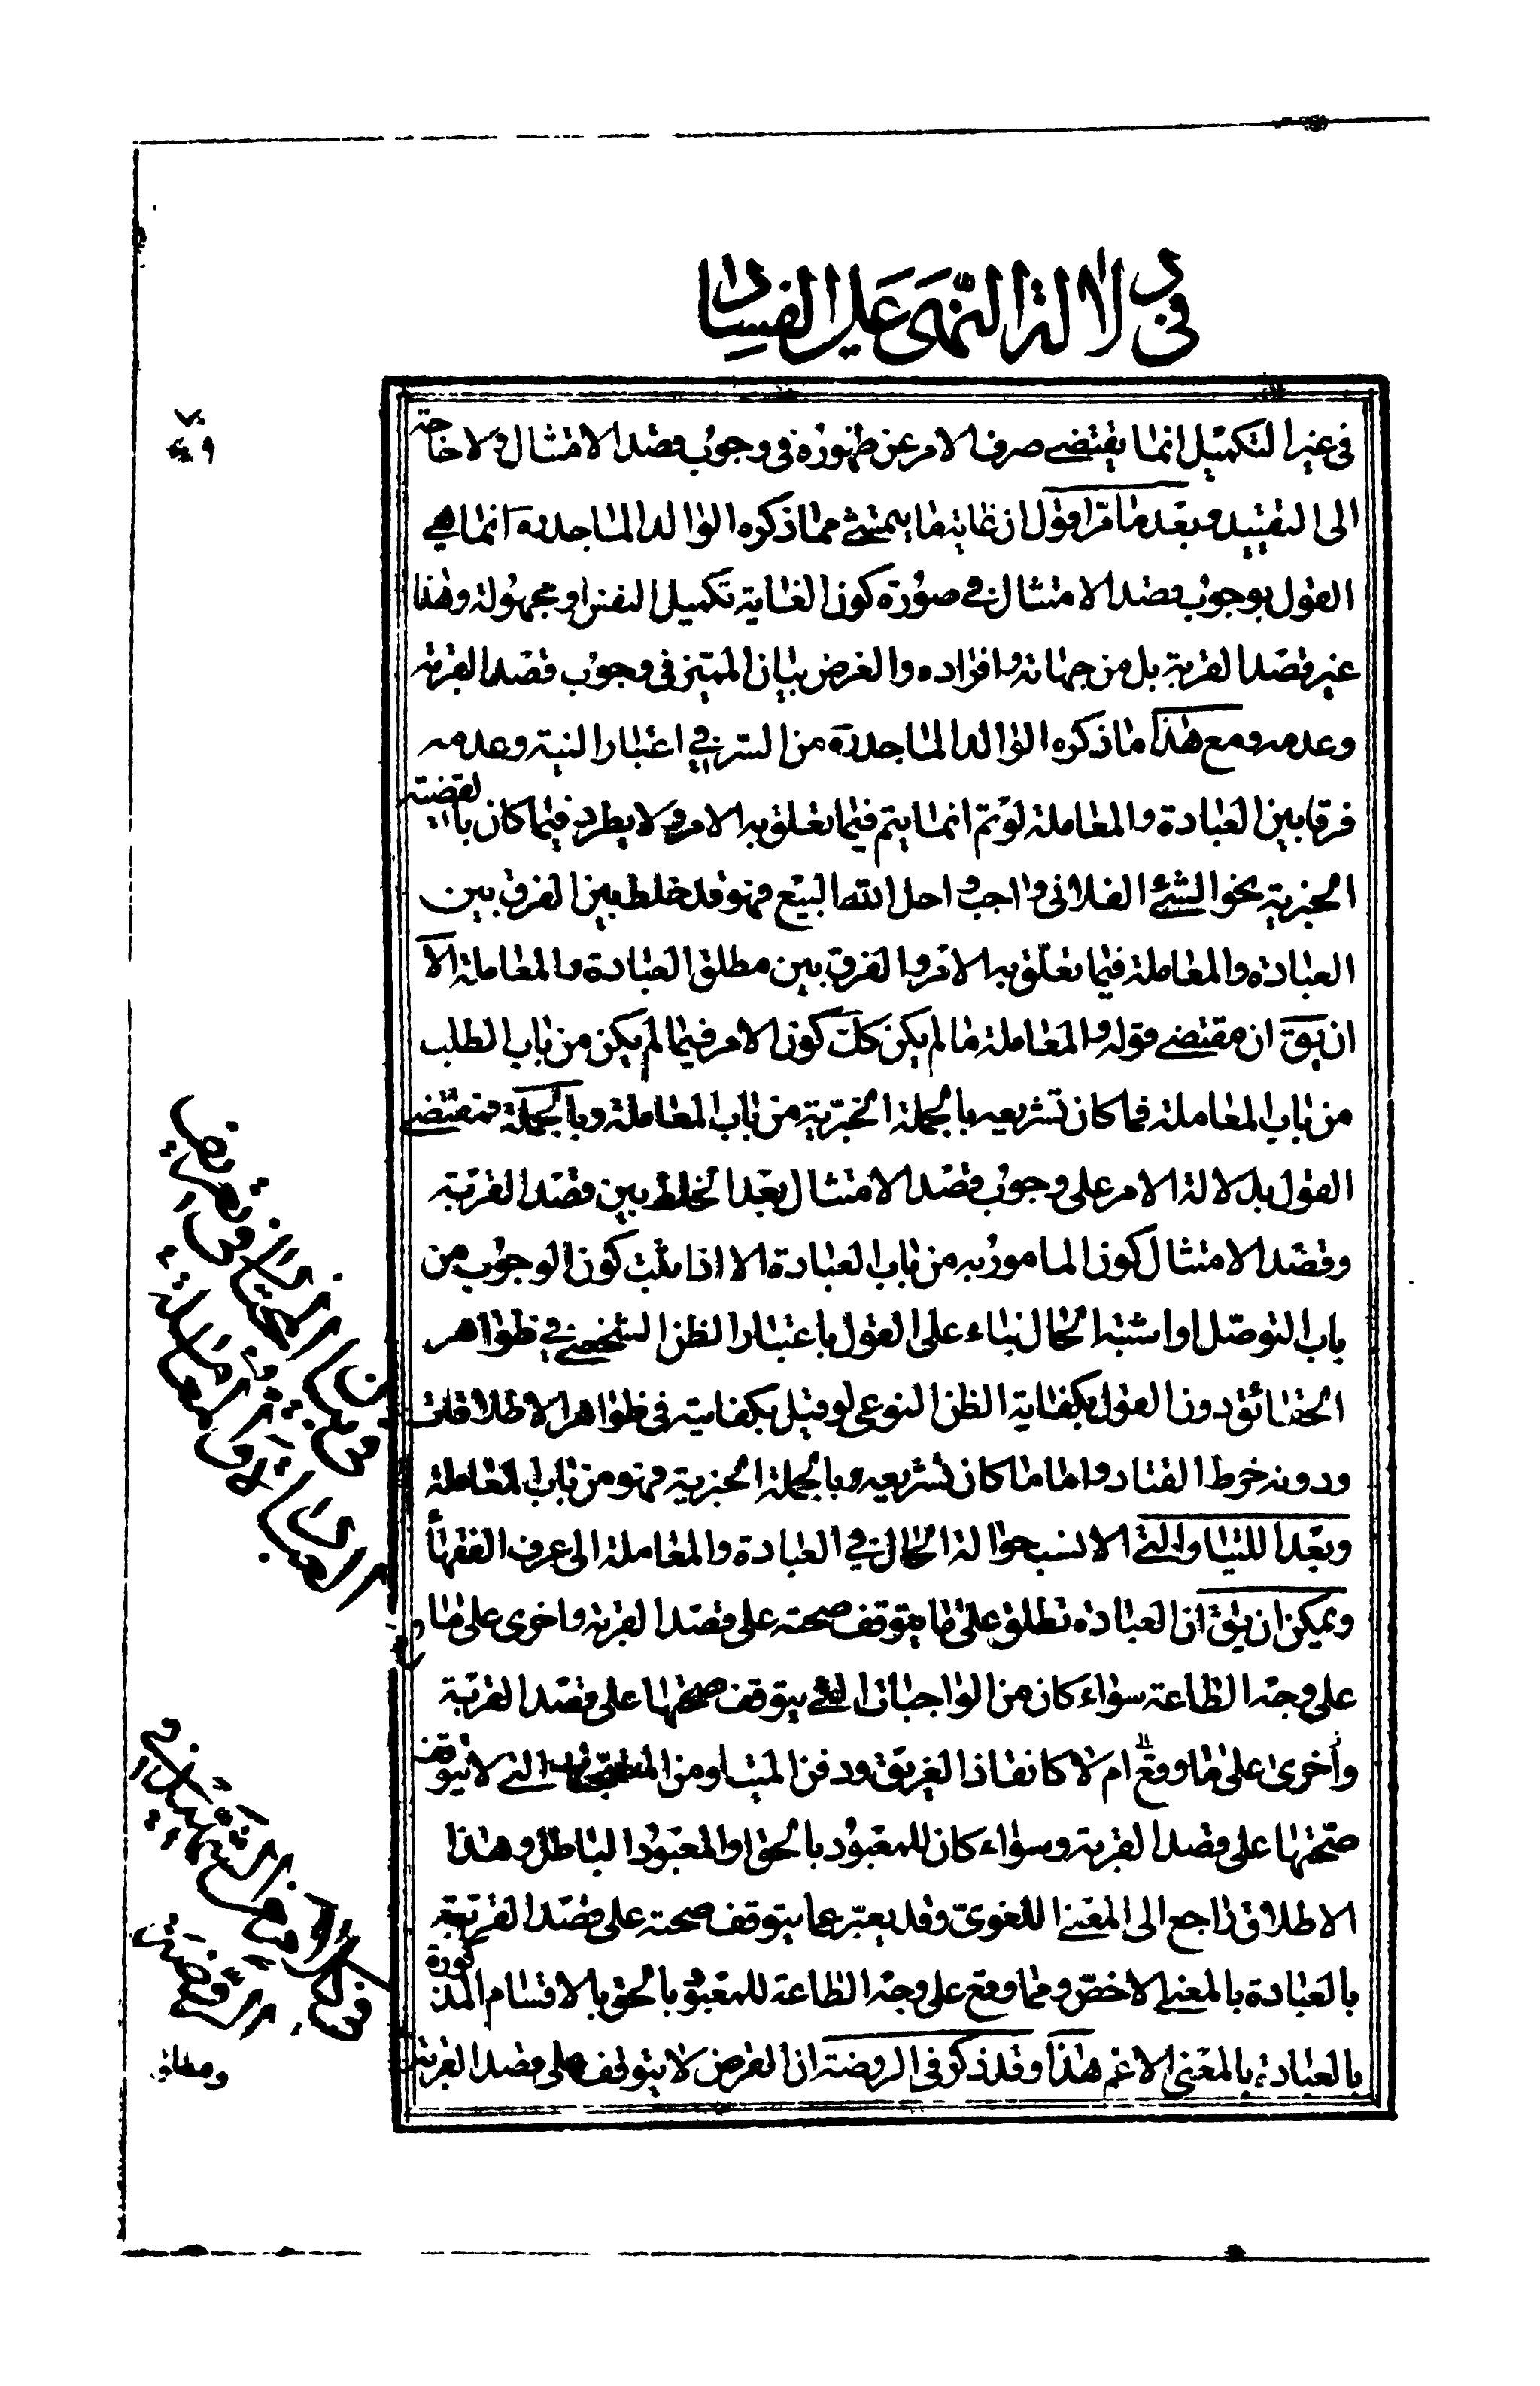 في دلالة النهى على الفساد
في غير التكميل انما يقتضي صرف الامر عن ظهوره في وجوب قصد الامتثال ولا حاجة
الى التقييد وبعد ما مر اقول ان غاية ما يتمشى مما ذكره الوالد الماجد ره انما هي
القول بوجوب قصد الامتثال في صورة كون الغاية تكميل النفس او مجهولة وهذا
غير قصد القربة بل من جهاته وافراده والغرض بيان المميز في وجوب قصد القربة
وعدمه ومع هذا ما ذكره الوالد الماجد ره من السر في اعتبار النية وعدمه
فرقا بين العبادة والمعاملة لو تم انما يتم فيما تعلق به الامر ولا يطرد فيما كان بالقضية
الخبرية نحو الشئ الفلاني واجب واحل الله البيع فهو قد خلط بين الفرق بين
العبادة والمعاملة فيما تعلق به الامر والفرق بين مطلق العبادة والمعاملة الا
ان يق ان مقتضى قوله والمعاملة ما لم يكن كك كون الامر فيما لم يكن من باب الطلب
من باب المعاملة فما كان تشريعه بالجملة الخبرية من باب المعاملة وبالجملة فمقتضى
القول بدلالة الامر على وجوب قصد الامتثال بعد الخلط بين قصد القربة
وقصد الامتثال كون المامور به من باب العبادة الا اذا ثبت كون الوجوب من
باب التوصل او اشتبه الحال بناء على القول باعتبار الظن الشخصي في ظواهر
الحقائق دون القول بكفاية الظن النوعي لو قيل بكفايته في ظواهر الاطلاقات
ودونه خرط القتاد واما ما كان تشريعه وبالجملة الخبرية فهو من باب المعاملة
وبعد اللتيا والتي الانسب حوالة الحال في العبادة والمعاملة الى عرف الفقهاء
ويمكن ان يق ان العبادة تطلق على ما يتوقف صحته على قصد القربة واخرى على ما
على وجه الطاعة سواء كان من الواجبات التي يتوقف صحتها على قصد القربة
واخرى على ما وقع ام لا كانقاذ الغريق ودفن الميت او من المستحبات التي لا يتوقف
صحتها على قصد القربة وسواء كان للمعبود بالحق او المعبود الباطل وهذا
الاطلاق راجع الى المعنى اللغوي وقد يعبر عما يتوقف صحته على قصد القربة
بالعبادة بالمعنى الاخص ومما وقع على وجه الطاعة للمعبود بالحق بالاقسام المذكورة
بالعبادة بالمعنى الاعم هذا وقد ذكر في الروضة ان الفرض لا يتوقف على قصد القربة
ومطلق